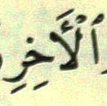 ٱلْأَخِرِ